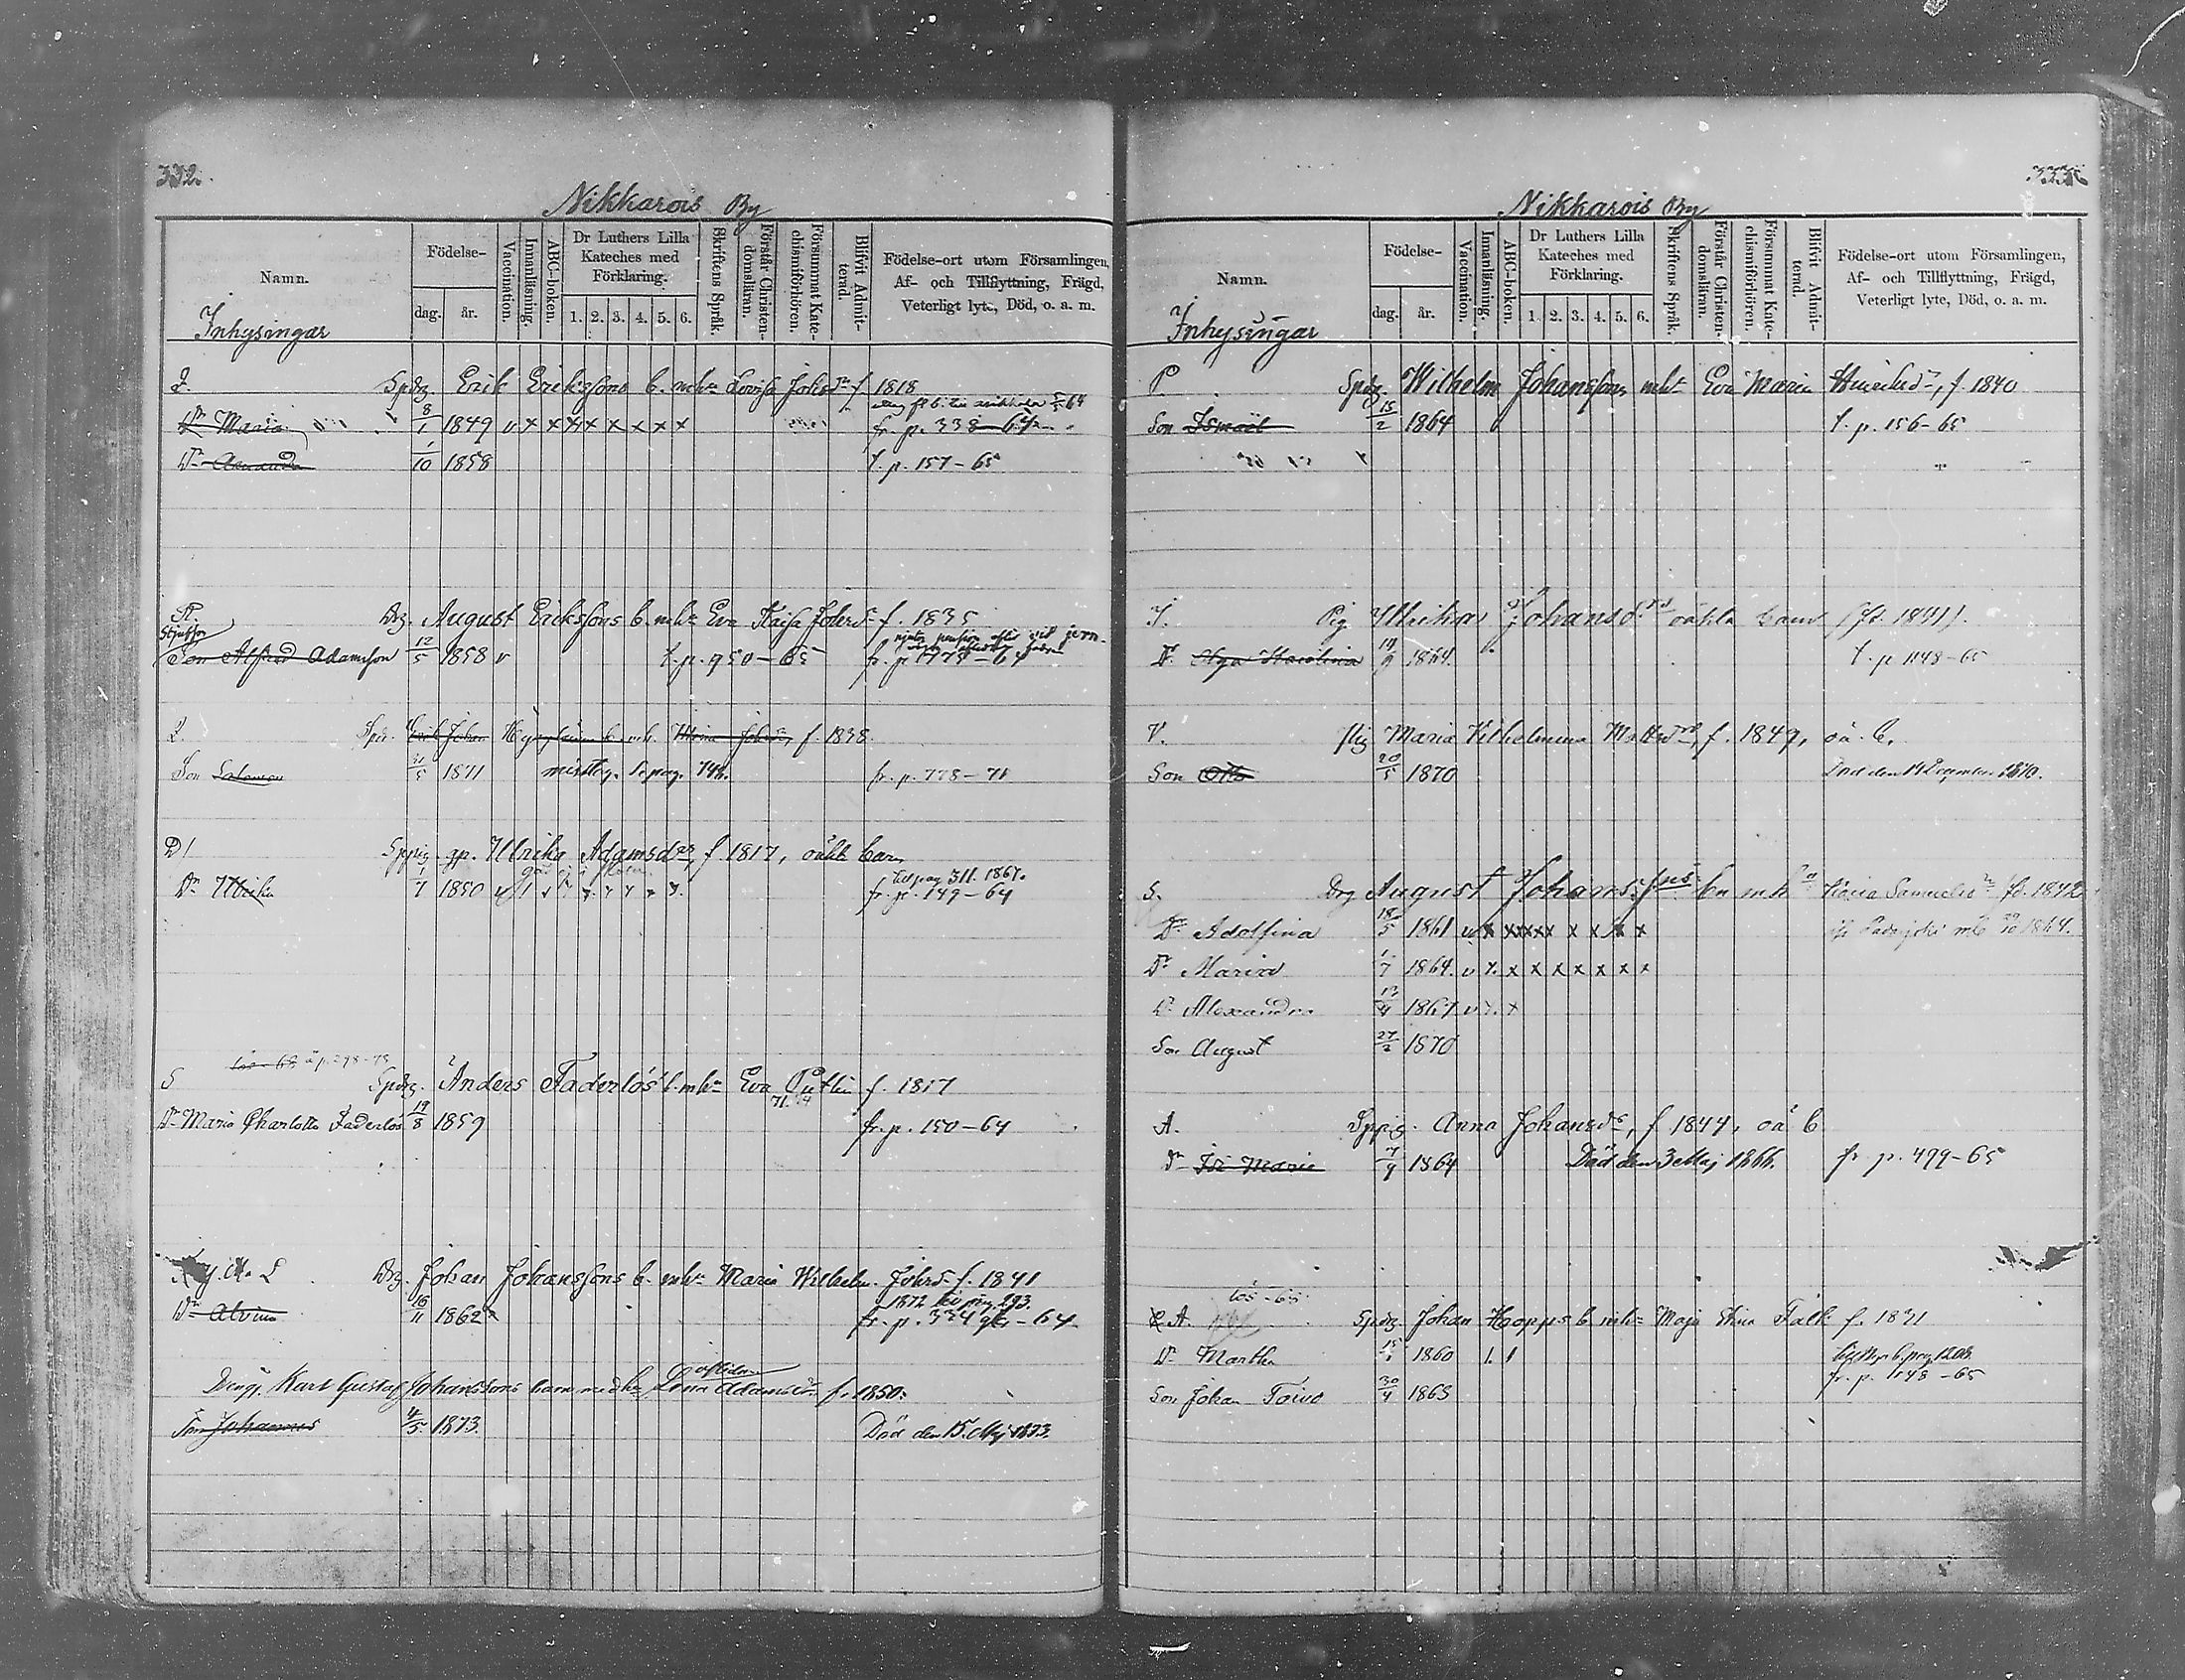 332.
Nikkarois By
Namn.
Inhysingar
Födelse-
dag.
år.
Vaccination.
Innanläsning.
ABC-boken.
Dr Luthers Lilla Kateches med Förklaring.
1. 2. 3. 4. 5. 6.
Skriftens Språk.
Förstår Christendomsläran.
Försummat Katechismiförhören.
Blifvit Admitterad.
Födelse-ort utom Församlingen, Af- och Tillflyttning, Frägd, Veterligt lyte, Död, o. a. m.
Spdrg. Erik Erikssons b. mhu Lovisa Johsdr f. 1818
Dr Maria 8/1 1849 v x x x x x x x x fr. p. 338-64
Dr 1/10 1858 t. p. 157-65
Drg. August Erikssons b. mhu Eva Kaisa Johsdr f. 1835
Styfson
Son Alfred Adamsson 12/5 1858 v t. p. 950-65 fr. p.
Johan f. 1838
Son Salomon 1871 misstag. pag. fr. p. 778-71
D!
gp. Ulrika Adamsdrs, f. 1817, oäkt barn
till pag 311. 1867.
Dr Ulrika 1/7 1850 fr. p. 149-64
S
Spdrg. Anders Faderlös' b. mhu Eva Putlin f. 1817
Dr Maria Charlotta Faderlös 19/8 1859 fr. p. 150-64
Drg. Johan Johanssons b. mhu Maria Wilhelm. Johsdr f. 1841
1872 till pag 293.
Dr Alvina 16/11 1862 fr. p. 324 - 64.
Dräng. Karl Gustaf Johanssons barn med hu aflidna Lena Adamsdr f. 1850.
Son Johannes 4/5 1873. Död den 15. Maj 1873.
Nikkarois By
Namn.
Inhysingar
Födelse-
dag.
år.
Vaccination.
Innanläsning.
ABC-boken.
Dr Luthers Lilla Kateches med Förklaring.
1. 2. 3. 4. 5. 6.
Skriftens Språk.
Förstår Christendomsläran.
Försummat Katechismiförhören.
Blifvit Admitterad.
Födelse-ort utom Församlingen, Af- och Tillflyttning, Frägd, Veterligt lyte, Död, o. a. m.
P
Spdrg. Wilhelm Johanssons mht Eva Maria Henriksdr, f. 1840
Son Ismael 15/2 1864 t. p. 156-65
Pig. Ulrikas Johansdrs oäkta barn (fd. 1841).
Dr Olga Karolina 19/9 1864. t. p. 1148-65
V.
Pig Maria Vilhelmina Mattsdrs, f. 1849, oä. b.
Son Otto 20/5 1870 Död den 14 December 1870.
S.
Drg August Johanssons bn m h Maria Samuelsdr fd. 1842
Dr Adolfina 18/5 1861 v x x x x x x x x x
Dr Maria 1/7 1864. v x x x x x x x x
Dr Alexandra 13/4 1867 v x x
Son August 27/2 1870
A.
Sppig. Anna Johansdr, f 1844, oä b
Dr Maria 7/9 1864 Död den 3 Maj 1866. fr. p. 499-65
A.
Spdrg. Johan Hopps b. mhu Maja Stina Falk f. 1831
Dr Martha 15/1 1860
fr. p. 1148-65
Son Johan Toivo 30/4 1863